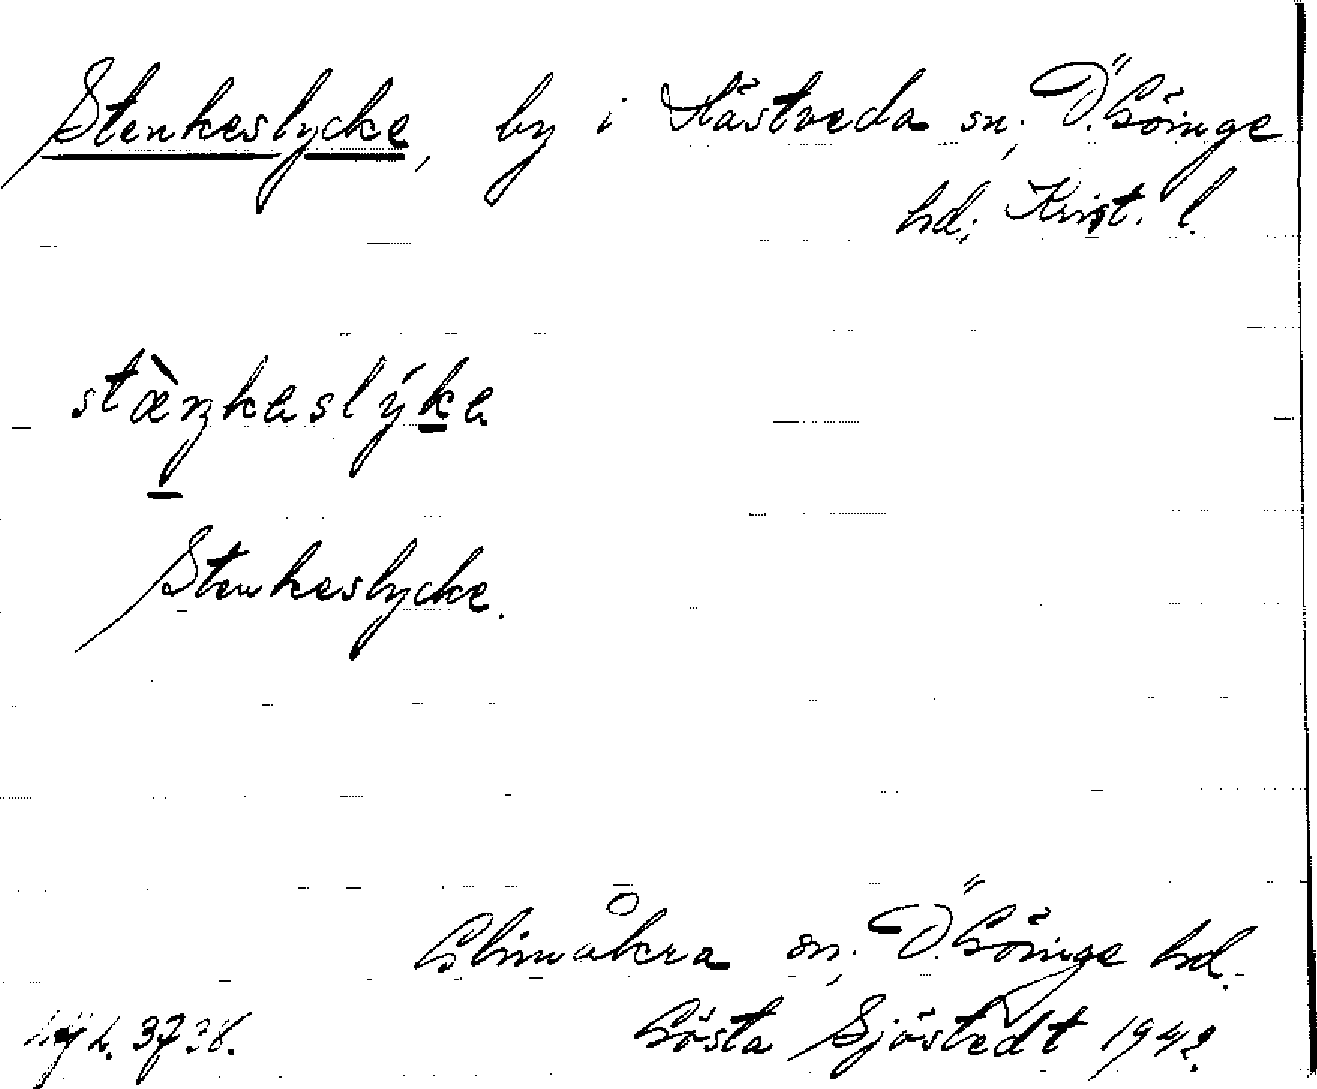 Stenkeslycke, by i Hästveda sn, Ö. Göinge
hd, Krist. l.
stæ̀ŋkaslýka
Stenkeslycke.
Glimåkra sn, Ö. Göinge hd.
Gösta Sjöstedt 1942